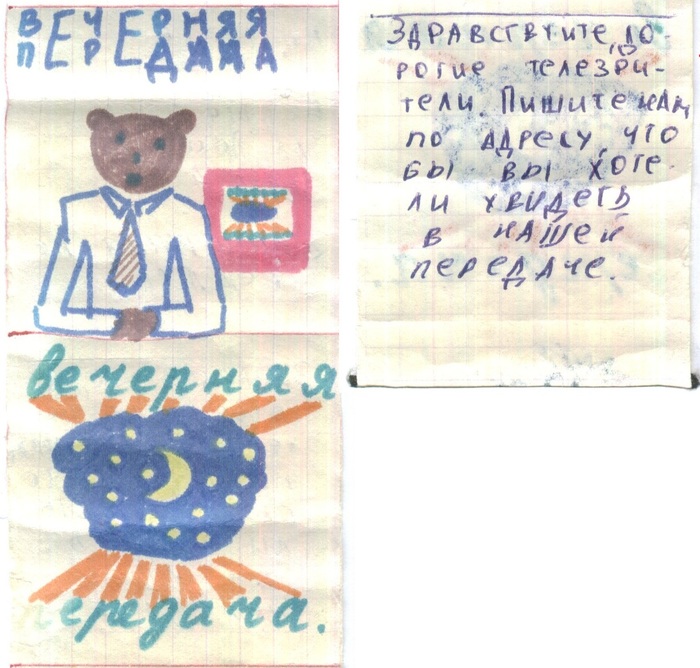 ВЕЧЕРНЯЯ
ПЕРЕДАЧА
вечерняя
передача.
ЗДРАВСТВУИТЕ, ДО
РОГИЕ ТЕЛЕЗРИ-
ТЕЛИ. ПИШИТЕ НАМ
ПО АДРЕСУ, ЧТО
БЫ ВЫ ХОТЕ-
ЛИ УВИДЕТЬ
В НАШЕЙ
ПЕРЕДАЧЕ.